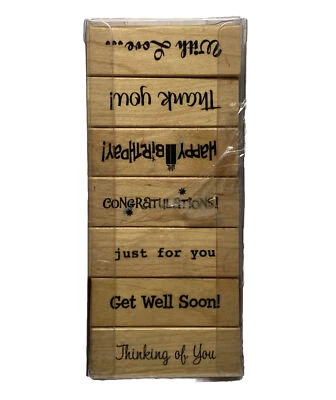 With Love...
Thank you!
HAPPY BIRTHDAY!
CONGRATULATIONS!
just for you
Get Well Soon!
Thinking of You